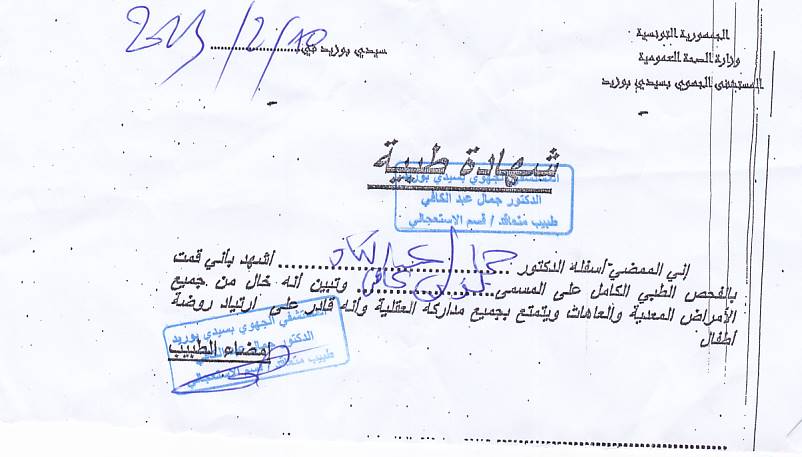 الجمهورية التونسية
وزارة الصحة العمومية
المستشفى الجهوي بسيدي بوزيد
سيدي بوزيد في 2023/2/10
شهادة طبية
المستشفى الجهوي بسيدي بوزيد
الدكتور جمال عبد الكافي
طبيب متعاقد / قسم الاستعجالي
إني الممضي أسفله الدكتور ........ أشهد بأني قمت
بالفحص الطبي الكامل على المسمى ........ وتبين أنه خال من جميع
الأمراض المعدية والعاهات ويتمتع بجميع مداركه العقلية وأنه قادر على ارتياد روضة
أطفال
إمضاء الطبيب
المستشفى الجهوي بسيدي بوزيد
الدكتور جمال عبد الكافي
طبيب متعاقد / قسم الاستعجالي